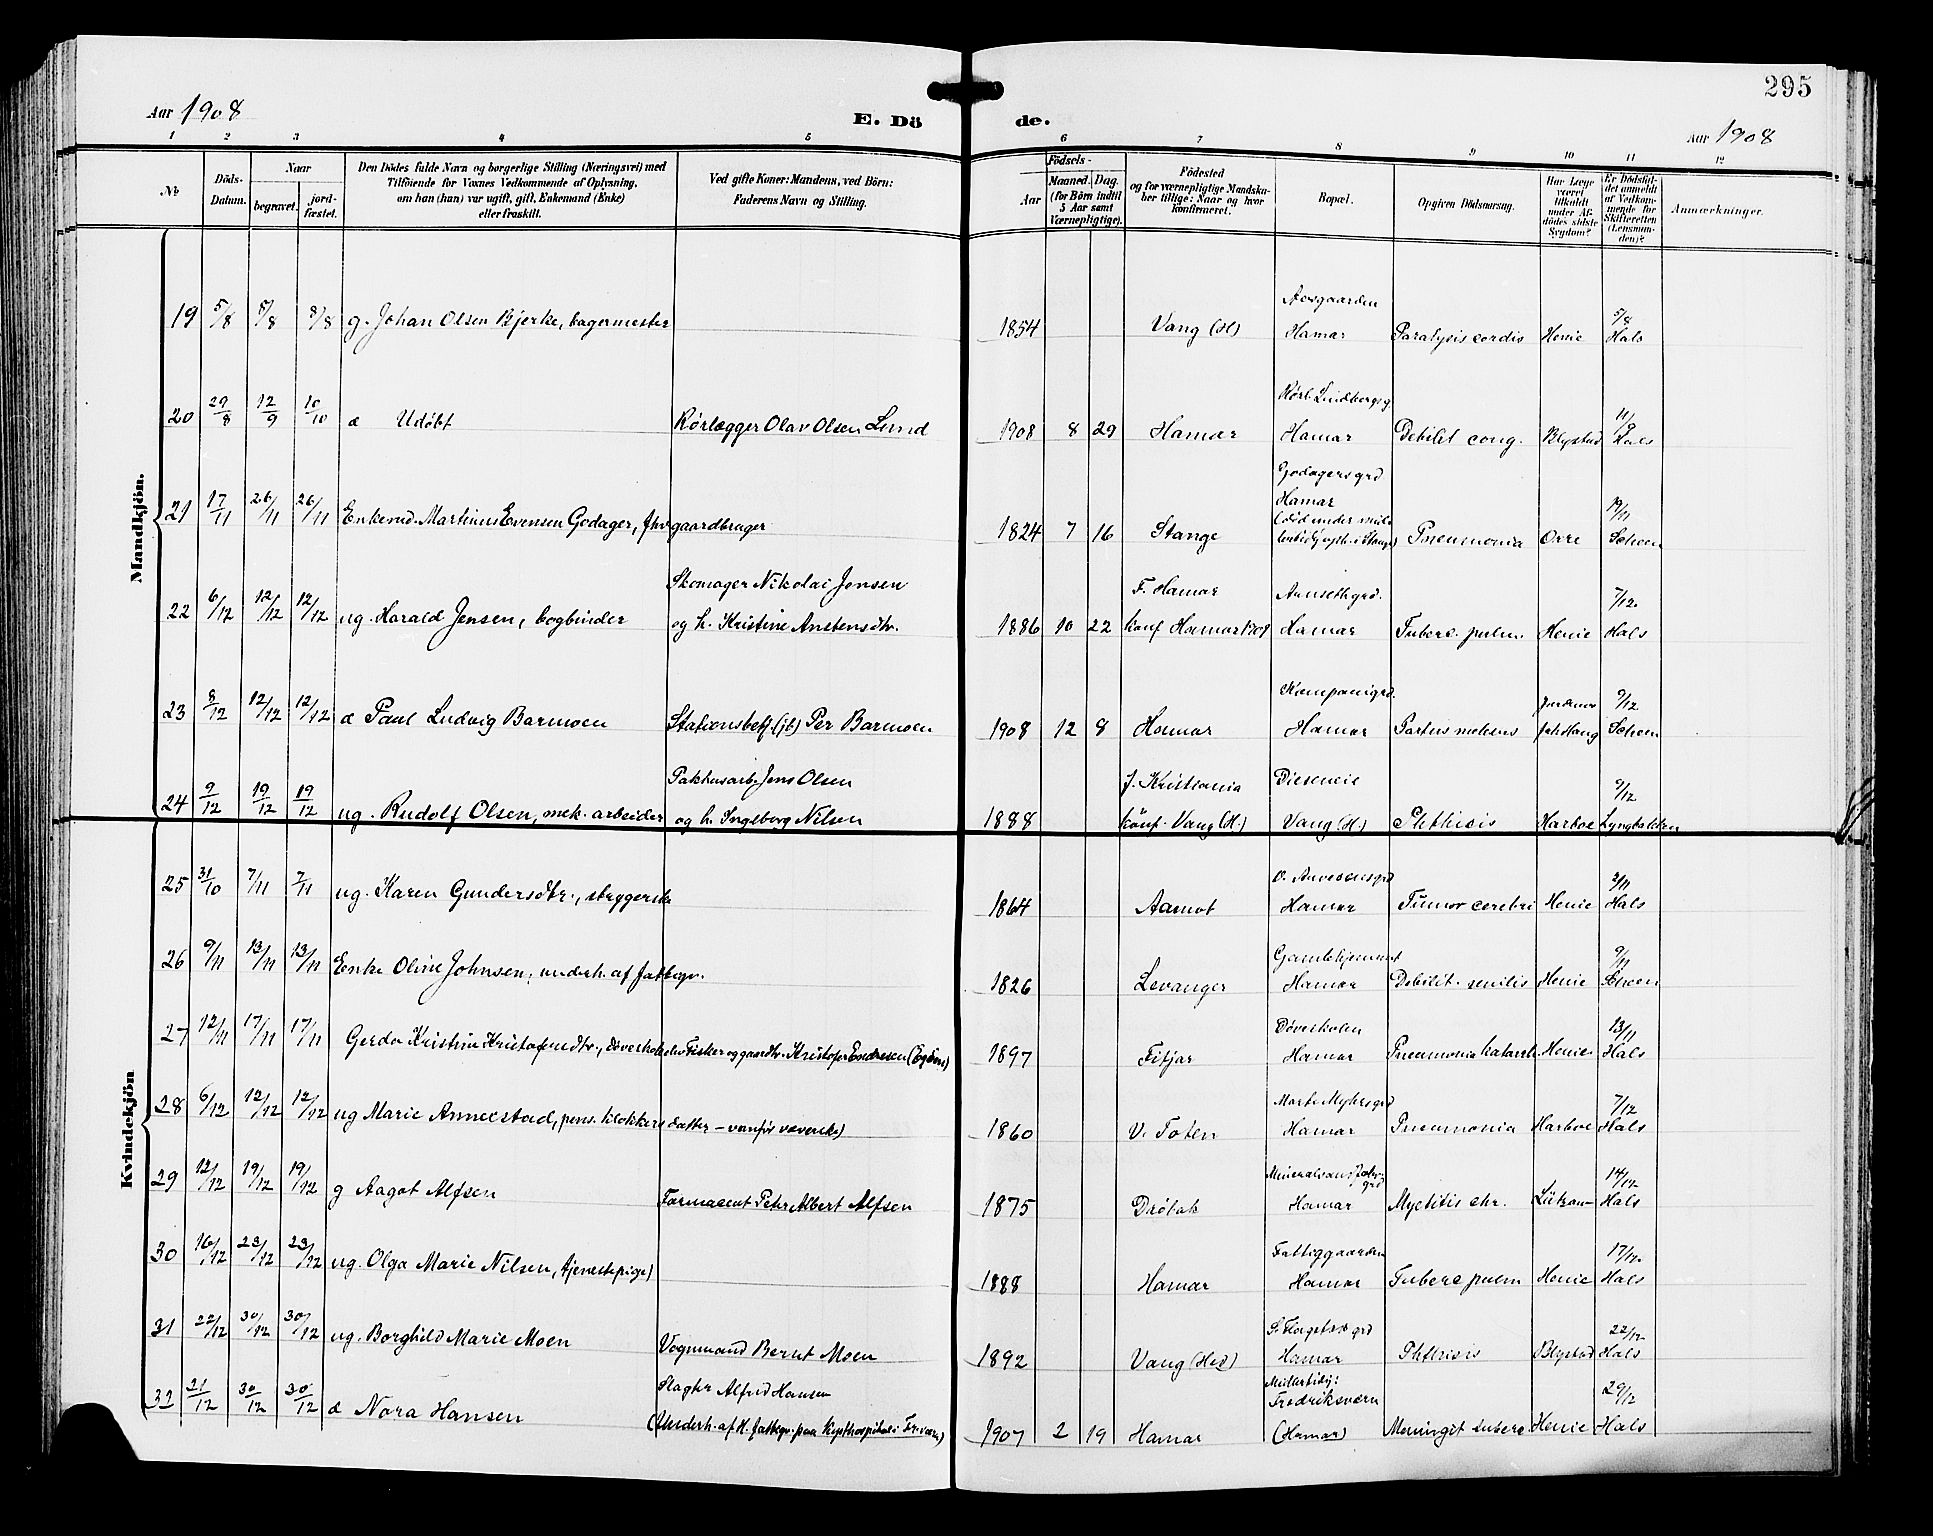 295
Aar 1908
E. Dö de.
Aar 1908
1 2 3 4 5 6 7 8 9 10 11 12
No
Döds-Datum.
Naar
begravet.
jordfæstet.
Den Dödes fulde Navn og borgerlige Stilling (Næringsvei) med
Tilföiende for Voxnes Vedkommende af Oplysning,
om han (hun) var ugift, gift, Enkemand (Enke)
eller fraskilt.
Ved gifte Koner: Mandens, ved Börn:
Faderens Navn og Stilling.
Födsels-
Aar
Maaned. Dag.
(for Börn indtil
5 Aar samt
Værnepligtige).
Födested
og for værnepligtige Mandska-
ber tillige: Naar og hvor
konfirmeret.
Bopæl.
Opgiven Dödsaarsag.
Har Læge
været
tilkaldt
under Af-
dödes sidste
Sygdom?
Er Dödsfal-
det anmeldt
af Vedkom-
mende for
Skifteretten
(Lensman-
den)?
Anmærkninger.
Mandkjön.
19 5/8 8/8 8/8 g. Johan Olsen Bjerke, bagermester 1854 Vang (H) Hamar Paralysis cordis Henie 5/8 Hals
20 29/8 12/9 10/10 d Udöbt Rørlægger Olav Olsen Lund 1908 8 29 Hamar Rørl. Lindbergs g. Hamar Debilit cong. Blystad 11/9 Hals
21 17/11 26/11 26/11 Enkemd. Martinus Evensen Godager, fhv gaardbruger 1824 7 16 Stange Godagers grd Hamar (död under Stange) Pneumonia Ovre 19/11 Scheen
22 6/12 12/12 12/12 ug. Harald Jensen, bogbinder Skomager Nikolai Jensen
og h. Kristine Anstensdtr. 1886 10 22 F. Hamar konf Hamar Hamar Tuberc. pulm. Henie 7/12 Hals
23 8/12 12/12 12/12 d Paul Ludvig Barmoen Stationsbetj. (jb) Per Barmoen 1908 12 8 Hamar Kompanigrd. Hamar Partus Jordmor 9/12 Scheen
24 9/12 19/12 19/12 ug. Rudolf Olsen, mek. arbeider Pakhusarb. Jens Olsen
og h. Ingeborg Nilsen 1888 f. Kristiania konf. Vang (H.) Vang (H.) Phthisis Harboe 9/12 Lyngbakken
Kvindekjön
25 31/10 7/11 7/11 ug. Karen Gundersdtr., strygerske 1864 Aamot Hamar Tumor cerebri Henie 2/11 Hals
26 9/11 13/11 13/11 Enke Oline Johnsen, underh. af fattigv. 1826 Levanger Gamlehjemmet Hamar Debilit. senilis Henie 9/11 Scheen
27 12/11 17/11 17/11 Gerda Kristine Kristofersdtr., døveskoleelev Fisker og gaardbr. Kristofer Endresen 1897 Fitjar Døveskolen Hamar Pneumonia katarrh. Henie 13/11 Hals
28 6/12 12/12 12/12 ug Marie Annexstad, pens. klokkers datter – vanför væverske) 1860 V. Toten Marte Myhrs grd Hamar Pneumonia Harboe 7/12 Hals
29 12/12 19/12 19/12 g Aagot Alfsen Farmaceut Petr. Albert Alfsen 1875 Dröbak Hamar Myelitis chr. Lützow 14/12 Hals
30 16/12 23/12 23/12 ug. Olga Marie Nilsen, tjenestepige) 1888 Hamar Fattiggaarden Hamar Tuberc pulm Henie 17/12 Hals
31 22/12 30/12 30/12 ug. Borghild Marie Moen Vognmand Bernt Moen 1892 Vang (Hed) Hamar Phthisis Blystad 22/12 Hals
32 21/12 30/12 30/12 d Nora Hansen Slagter Alfred Hansen
(Underh. af H. fattigv. paa Kysthospitalet i Fr.værn) 1907 2 19 Hamar Midlertidig: Fredriksværn (Hamar) Meningit tuberc Henie 29/12 Hals